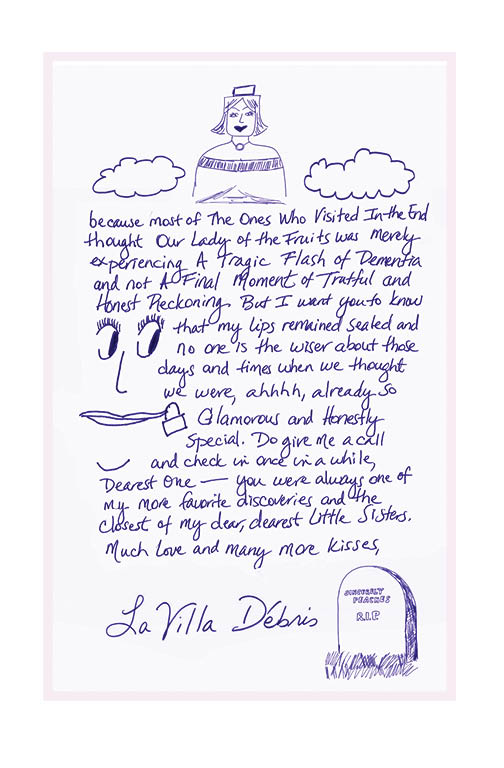 because most of The Ones Who Visited In-the End
thought Our Lady of the Fruits was merely
experiencing A Tragic Flash of Dementia
and not A Final Moment of Tratful and
Honest Reckoning. But I want you to know
that my lips remained sealed and
no one is the wiser about those
days and times when we thought
we were, ahhhh, already so
Glamorous and Honestly
Special. Do give me a call
and check in once in a while,
Dearest One — you were always one of
my more favorite discoveries and the
closest of my dear, dearest Little Sisters.
Much Love and many more kisses,
La Villa Débris
SINCERELY
PEACHES
R.I.P